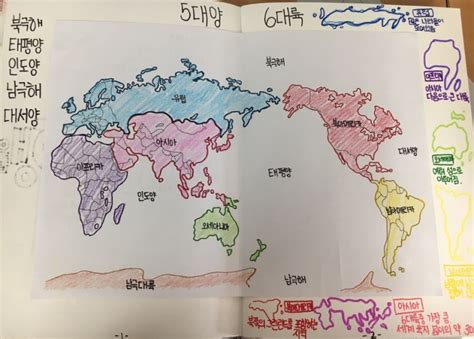 5대양 6대륙
북극해
태평양
인도양
남극해
대서양
북극해
유럽
아시아
아프리카
인도양
오세아니아
태평양
북아메리카
대서양
남아메리카
남극대륙
남극해
유럽
많은 나라들이
아프리카
아시아
다음으로 큰 대륙
여러 섬으로
이루어짐
아시아
6대륙중 가장 큼
세계 육지 면적의 약 30%
북아메리카
-1-
-2-